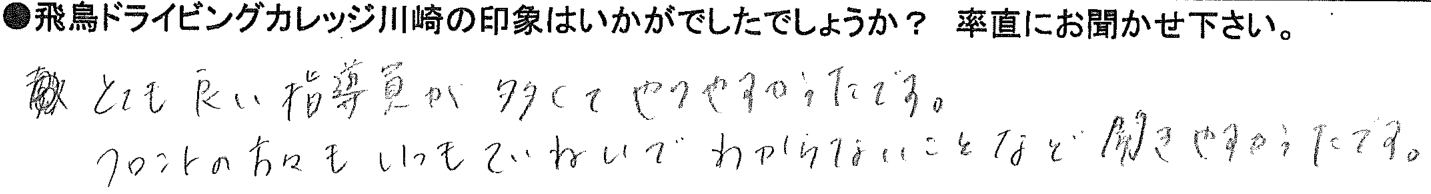 ●飛鳥ドライビングカレッジ川崎の印象はいかがでしたでしょうか？ 率直にお聞かせ下さい。
とても良い指導員が多くてやりやすかったです。
フロントの方々もいつもていねいでわからないことなど聞きやすかったです。